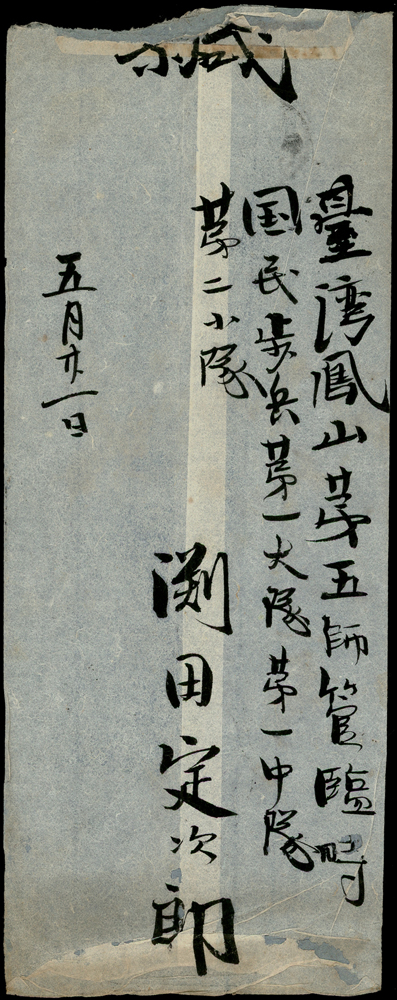 緘
臺湾鳳山第五師管臨時
国民歩兵第一大隊第一中隊
第二小隊
渕田定次郎
五月廿一日